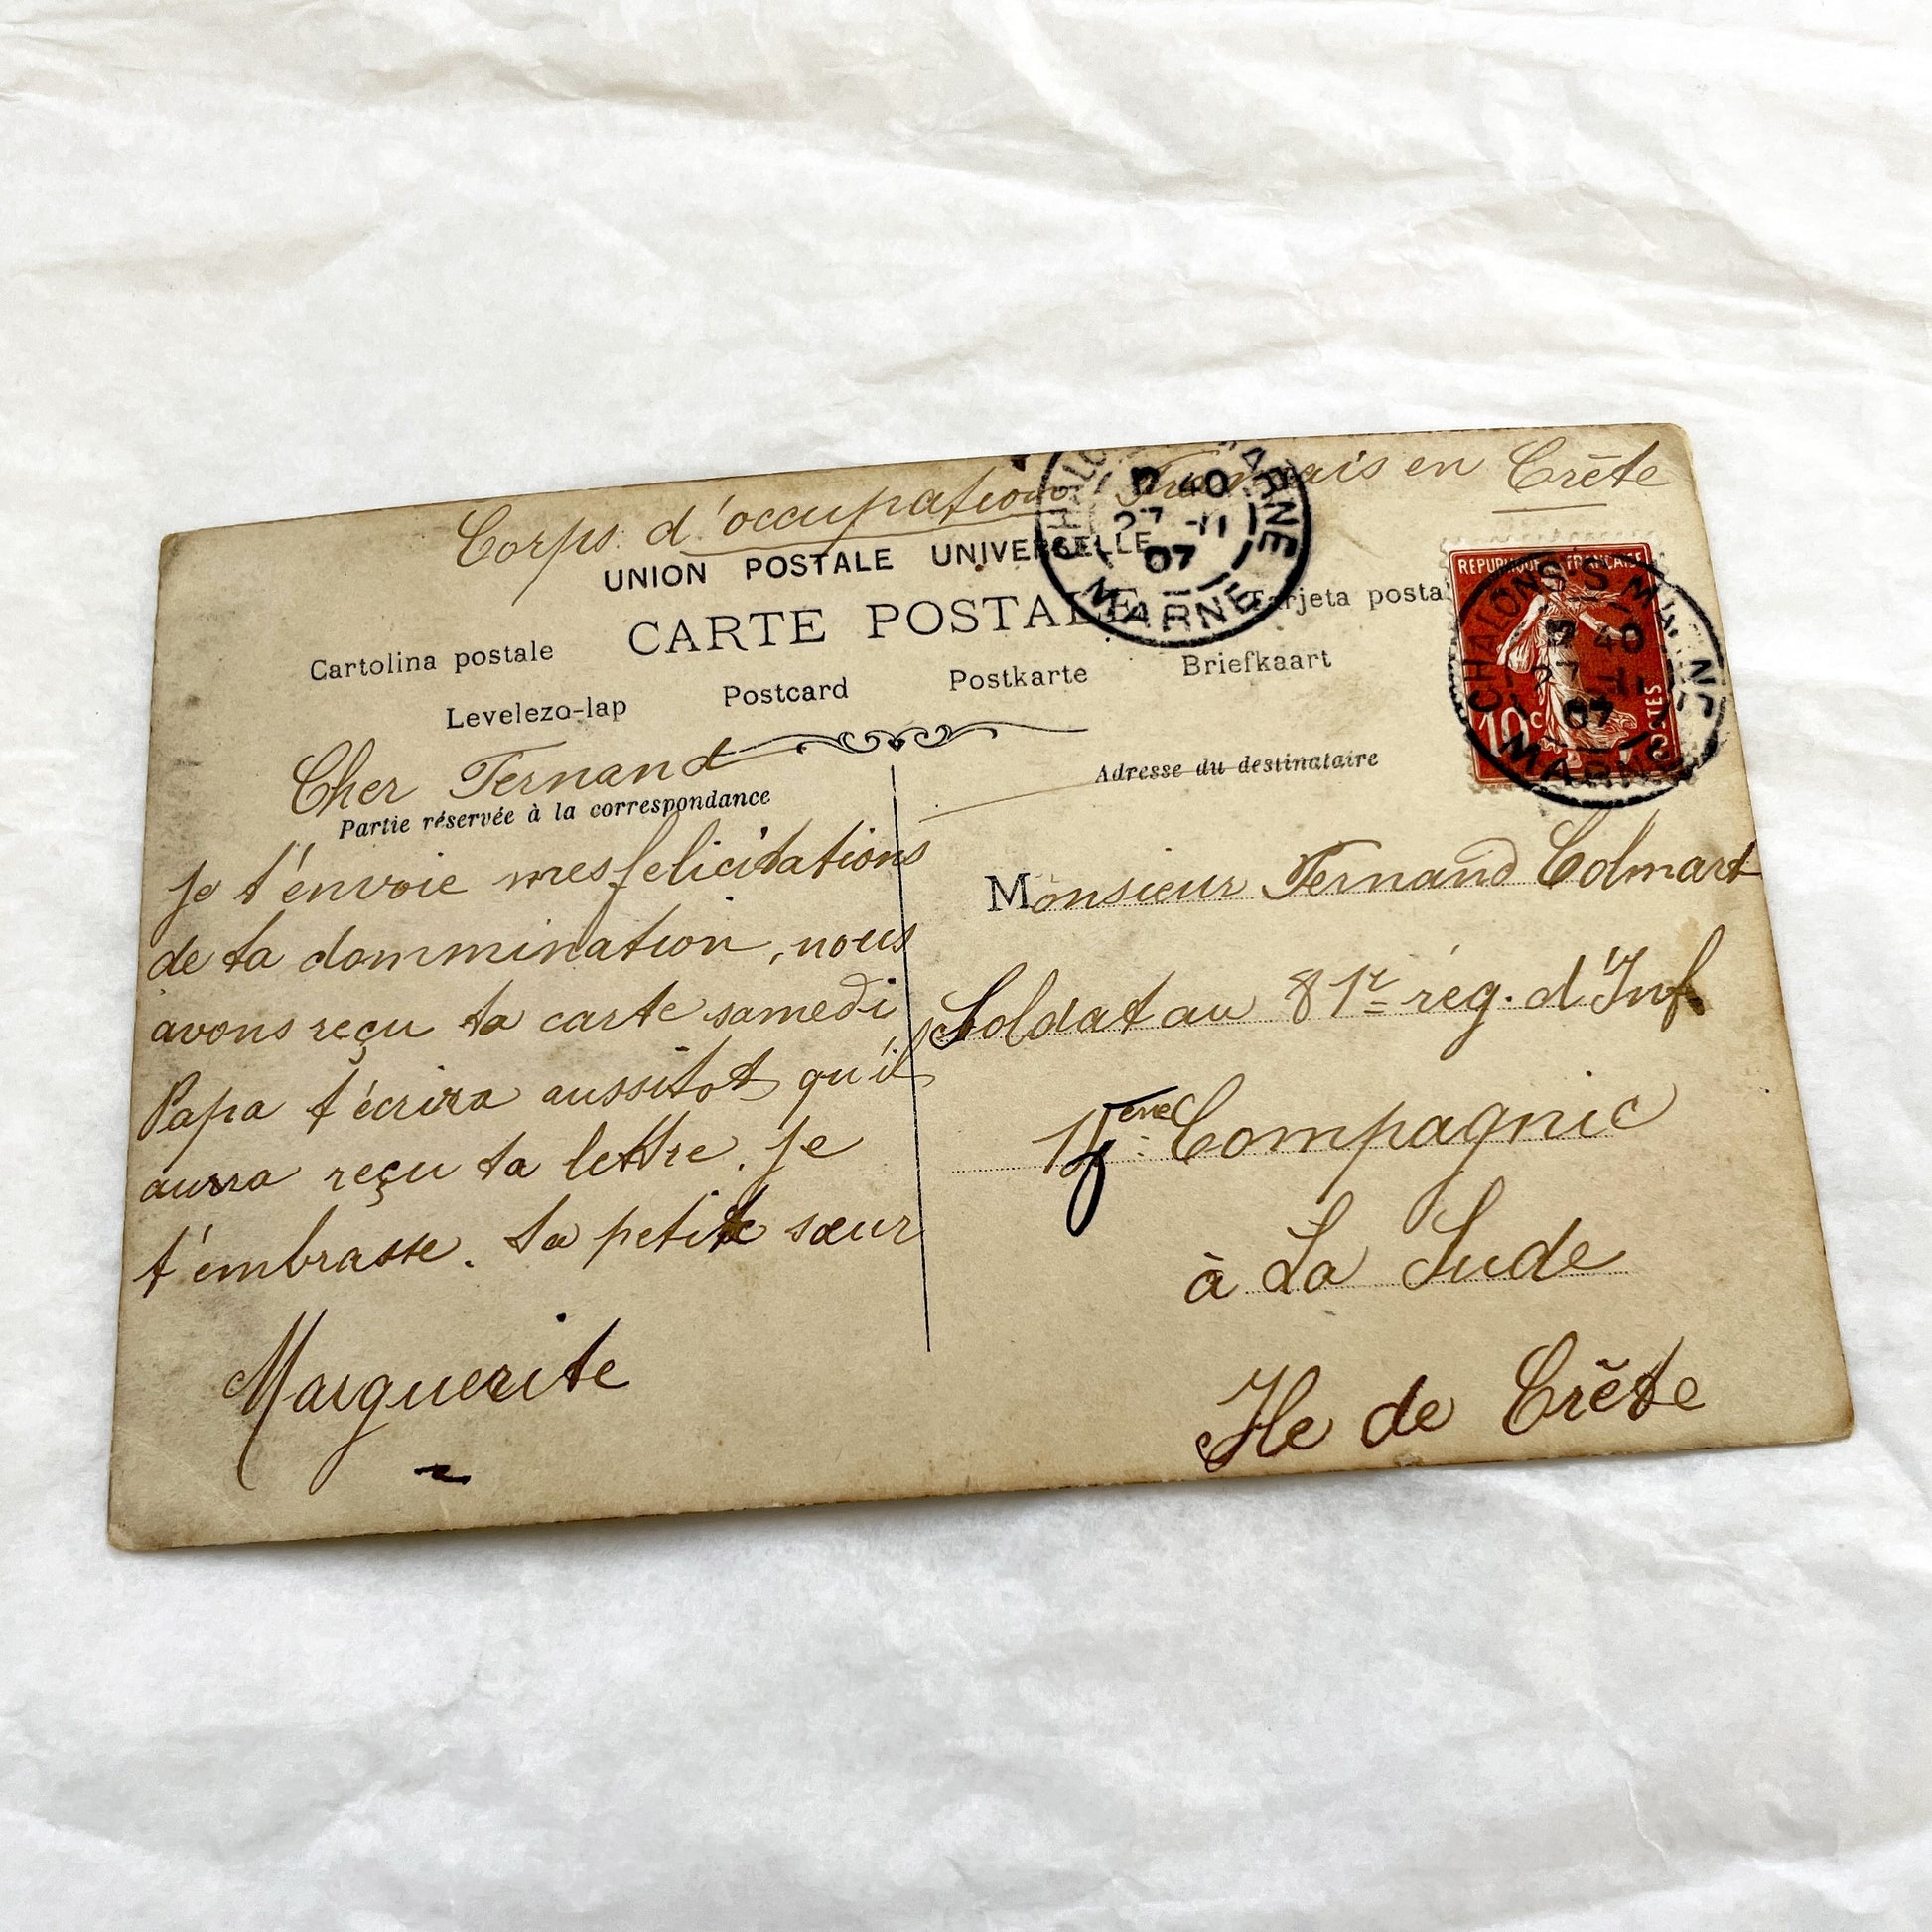 Corps d'occupation Français en Crête
UNION POSTALE UNIVERSELLE
CARTE POSTALE
Cartolina postale
Tarjeta postal
Levelezo-lap Postcard Postkarte Briefkaart
CHALONS S MARNE
40
27 -11
07
MARNE
REPUBLIQUE FRANÇAISE
10c
POSTES
CHALONS S MARNE
40
27 -11
07
MARNE
Cher Fernand
Partie réservée à la correspondance
Je t'envoie mes felicitations
de ta dommination, nous
avons reçu ta carte samedi
Papa t'écrira aussitot qu'il
aurra reçu ta lettre. Je
t'embrasse. Ta petite sœur
Marguerite
Adresse du destinataire
Monsieur Fernand Colmart
Soldat au 81r rég. d'Inf.
Compagnie
à La Sude
Ile de Crête